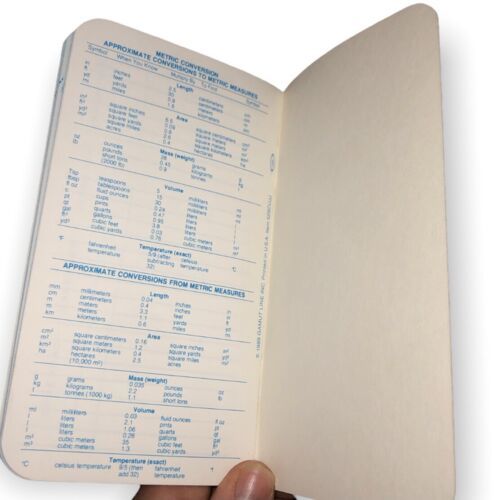 METRIC CONVERSION
APPROXIMATE CONVERSIONS TO METRIC MEASURES
Symbol When You Know Multiply By To Find Symbol
Length
in inches 2.5 centimeters cm
ft feet 30 centimeters cm
yd yards 0.9 meters m
mi miles 1.6 kilometers km
Area
in² square inches 6.5 square centimeters cm²
ft² square feet 0.09 square meters m²
yd² square yards 0.8 square meters m²
mi² square miles 2.6 square kilometers km²
acres 0.4 hectares ha
Mass (weight)
oz ounces 28 grams g
lb pounds 0.45 kilograms kg
short tons 0.9 tonnes t
(2000 lb)
Volume
Tsp teaspoons 5 milliliters ml
Tbsp tablespoons 15 milliliters ml
fl oz fluid ounces 30 milliliters ml
c cups 0.24 liters l
pt pints 0.47 liters l
qt quarts 0.95 liters l
gal gallons 3.8 liters l
ft³ cubic feet 0.03 cubic meters m³
yd³ cubic yards 0.76 cubic meters m³
Temperature (exact)
°F fahrenheit 5/9 (after celsius °C
temperature subtracting temperature
32)
APPROXIMATE CONVERSIONS FROM METRIC MEASURES
Length
mm millimeters 0.04 inches in
cm centimeters 0.4 inches in
m meters 3.3 feet ft
m meters 1.1 yards yd
km kilometers 0.6 miles mi
Area
cm² square centimeters 0.16 square inches in²
m² square meters 1.2 square yards yd²
km² square kilometers 0.4 square miles mi²
ha hectares 2.5 acres
(10,000 m²)
Mass (weight)
g grams 0.035 ounces oz
kg kilograms 2.2 pounds lb
t tonnes (1000 kg) 1.1 short tons
Volume
ml milliliters 0.03 fluid ounces fl oz
l liters 2.1 pints pt
l liters 1.06 quarts qt
l liters 0.26 gallons gal
m³ cubic meters 35 cubic feet ft³
m³ cubic meters 1.3 cubic yards yd³
Temperature (exact)
°C celsius temperature 9/5 (then fahrenheit °F
add 32) temperature
© 1989 GAMUT LINE INC. Printed in U.S.A.